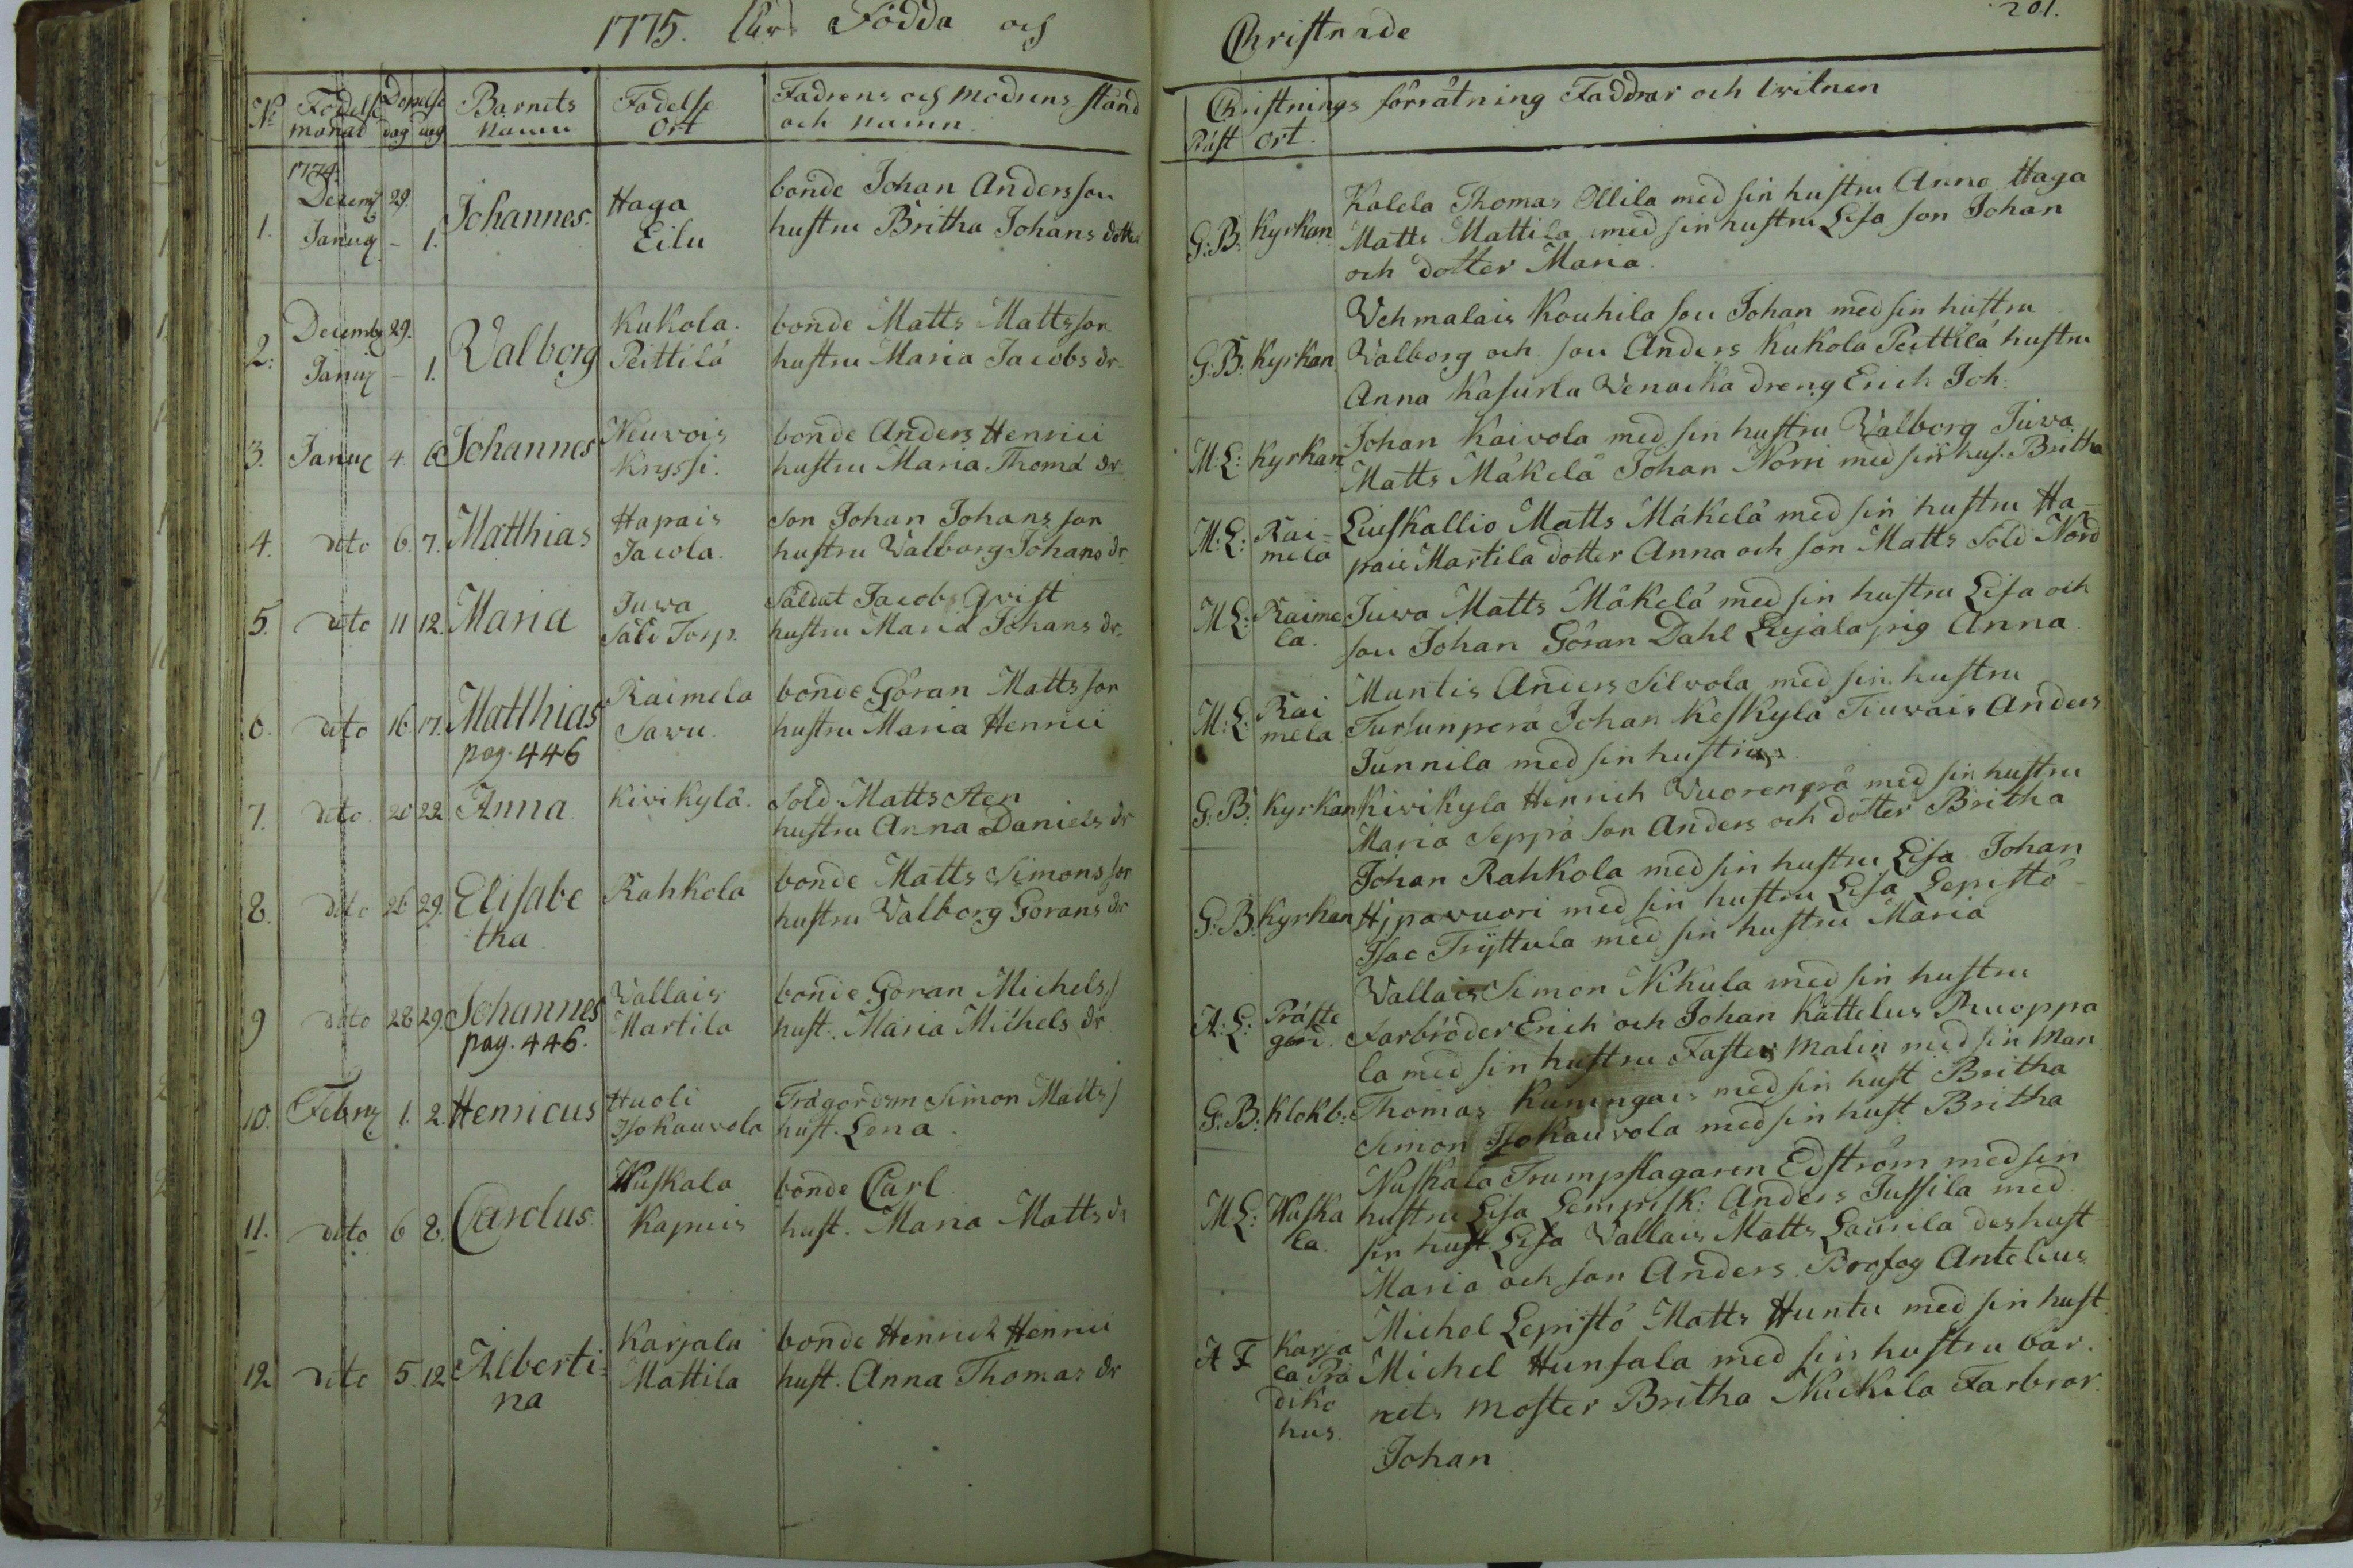 1775. Års Födda och
Christnade
201.
No Födelse månad dag Döpelse dag Barnets namn Födelse Ort Fadrens och modrens stånd och namn.
Christnings förrätning Faddrar och witnen
Präst Ort.
1774.
1. Decemb 29. Januarj – 1. Johannes. Haga Eilu
bonde Johan Andersson
hustru Britha Johans dotter
2. Decemb 29. Januarj – 1. Valborg Kukola. Peittilä
bonde Matts Mattsson
hustru Maria Jacobs dr.
3. Januar 4 6 Johannes Neuvois Kryssi.
bonde Anders Henrici
hustru Maria Thoma dr.
4. dito 6. 7. Matthias Hapais Jacola.
son Johan Johansson
hustru Valborg Johans dr.
5. dito 11 12. Maria Juva Sold Torp.
Soldat Jacob Qvist
hustru Maria Johans dr.
6. dito 16. 17. Matthias Raimela Savu.
pag. 446
bonde Göran Mattsson
hustru Maria Henrici
7. dito. 20 22 Anna Kivikylä.
Sold. Matts Sten
hustru Anna Daniels dr
8. dito 26 29. Elisabe
tha
Rahkola
bonde Matts Simonsson
hustru Valborg Görans dr
9 dito 28 29. Johannes Vallais Martila
pag. 446.
bonde Göran Michels
hust. Maria Michels dr
10. Februarj 1. 2. Henricus Huoli Isokauvola
Trägårdsm Simon Matts
hust. Lena.
11. dito 6 8. Carolus Nuskala Kapuis
bonde Carl
hust. Maria Matts dr
12 dito 5. 12 Alberti=
na
Karjala Mattila
bonde Henrich Henrici
hust. Anna Thomas dr
G: B: Kyrkan
Kalela Thomas Ollila med sin hustru Anna Haga
Matts Mattila med sin hustru Lisa son Johan
och dotter Maria.
G: B: Kyrkan
Vehmalais Kouhila son Johan med sin hustru
Valborg och son Anders Kukola Peittilä hustru
Anna Kasurla Venacka dreng Erich Joh.
M: L: Kyrkan
Johan Kaivola med sin hustru Valborg Juva
Matts Mäkelä Johan Norri med sin hus. Britha
M: L: Rai=
mela
Liuskallio Matts Mäkelä med sin hustru Ha-
pais Martila dotter Anna och son Matts Sold Nord
M L: Raime
la.
Juva Matts Mäkelä med sin hustru Lisa och
son Johan Göran Dahl Lujala pig Anna
M: L: Rai
mela
Muntis Anders Silvola med sin hustru
Tursunperä Johan Keskylä Tiuvais Anders
Junnila med sin hustru.
G: B: Kyrkan
Kivikyla Henrich Vuorenpä med sin hustru
Maria Seppä son Anders och dotter Britha
G: B: Kyrkan
Johan Rahkola med sin hustru Lisa Johan
Hjpavuori med sin hustru Lisa Lepistö
Isac Tryttula med sin hustru Maria
A: L: Präste
gård.
Vallais Simon Nikula med sin hustru
Farbröder Erich och Johan Kättelus Ruoppa
la med sin hustru Faster Malin med sin man
G: B: Klokb:
Thomas Kuningais med sin hust Britha
Simon Isokauvola med sin hust Britha
M L: Nuska
la.
Nuskala Trumpslagaren Edström med sin
hustru Lisa Lempisk: Anders Jussila med
sin hust Lisa Vallais Matts Laurila des hust
Maria och son Anders. Brofog Antelius
A F Karja
la Prä
diko
hus.
Michel Lepistö Matts Huntu med sin hust
Michel Hunsala med sin hustru bar.
nets moster Britha Nickila Farbror.
Johan